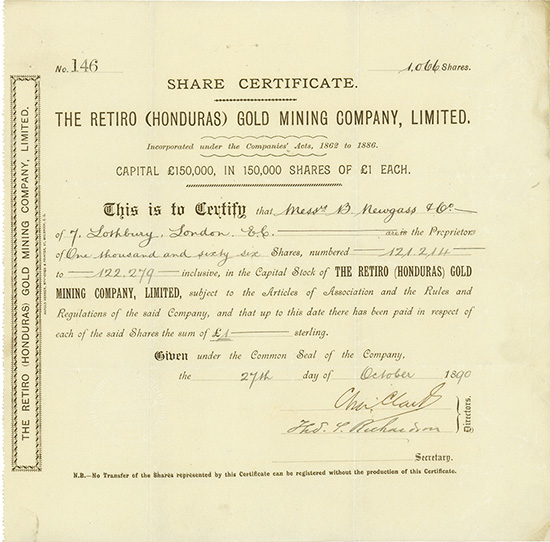 No. 146
1,066 Shares.
SHARE CERTIFICATE.
THE RETIRO (HONDURAS) GOLD MINING COMPANY, LIMITED.
Incorporated under the Companies' Acts, 1862 to 1886.
CAPITAL £150,000, IN 150,000 SHARES OF £1 EACH.
This is to Certify that Messrs B. Newgass & Co.
of 7, Lothbury, London, E.C. are the Proprietors
of One thousand and sixty six Shares, numbered 121.214
to 122.279 inclusive, in the Capital Stock of THE RETIRO (HONDURAS) GOLD
MINING COMPANY, LIMITED, subject to the Articles of Association and the Rules and
Regulations of the said Company, and that up to this date there has been paid in respect of
each of the said Shares the sum of £1 sterling.
Given under the Common Seal of the Company,
the 27th day of October 1890
Clark
Thos. Richardson
Directors.
Secretary.
N.B.—No Transfer of the Shares represented by this Certificate can be registered without the production of this Certificate.
THE RETIRO (HONDURAS) GOLD MINING COMPANY, LIMITED.